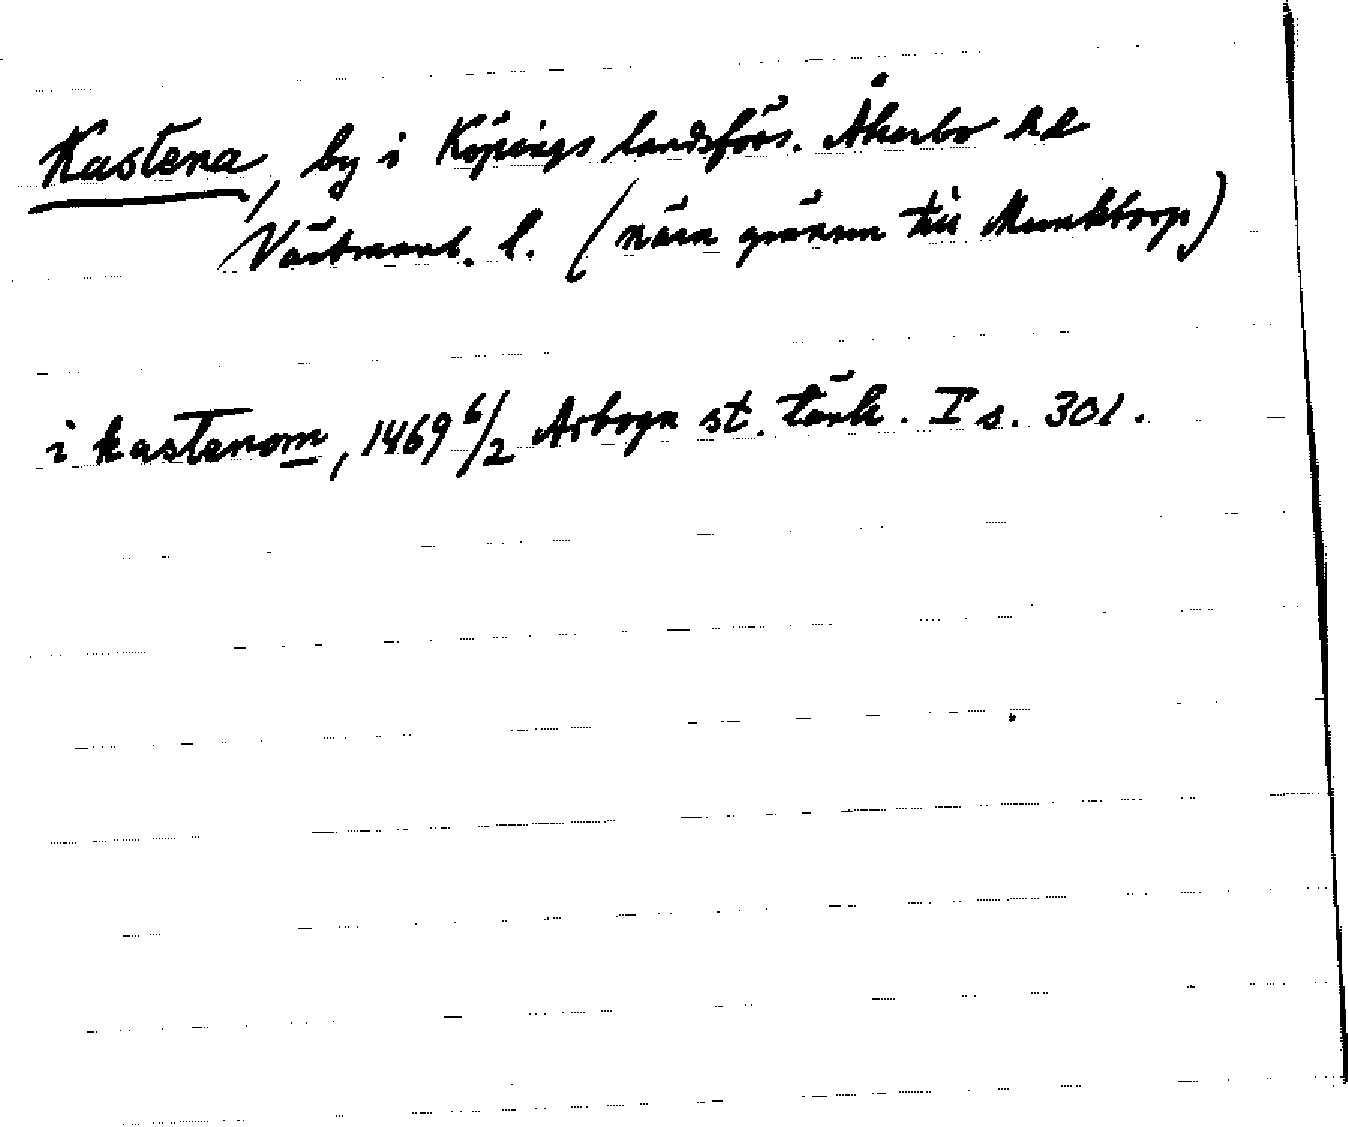 Kastena, by i Köpings landsförs. Åkerbo hd
Västmanl. l. (nära gränsen till Munktorp)
i kastenom, 1469 6/2 Arboga st. tänk. I s. 301.